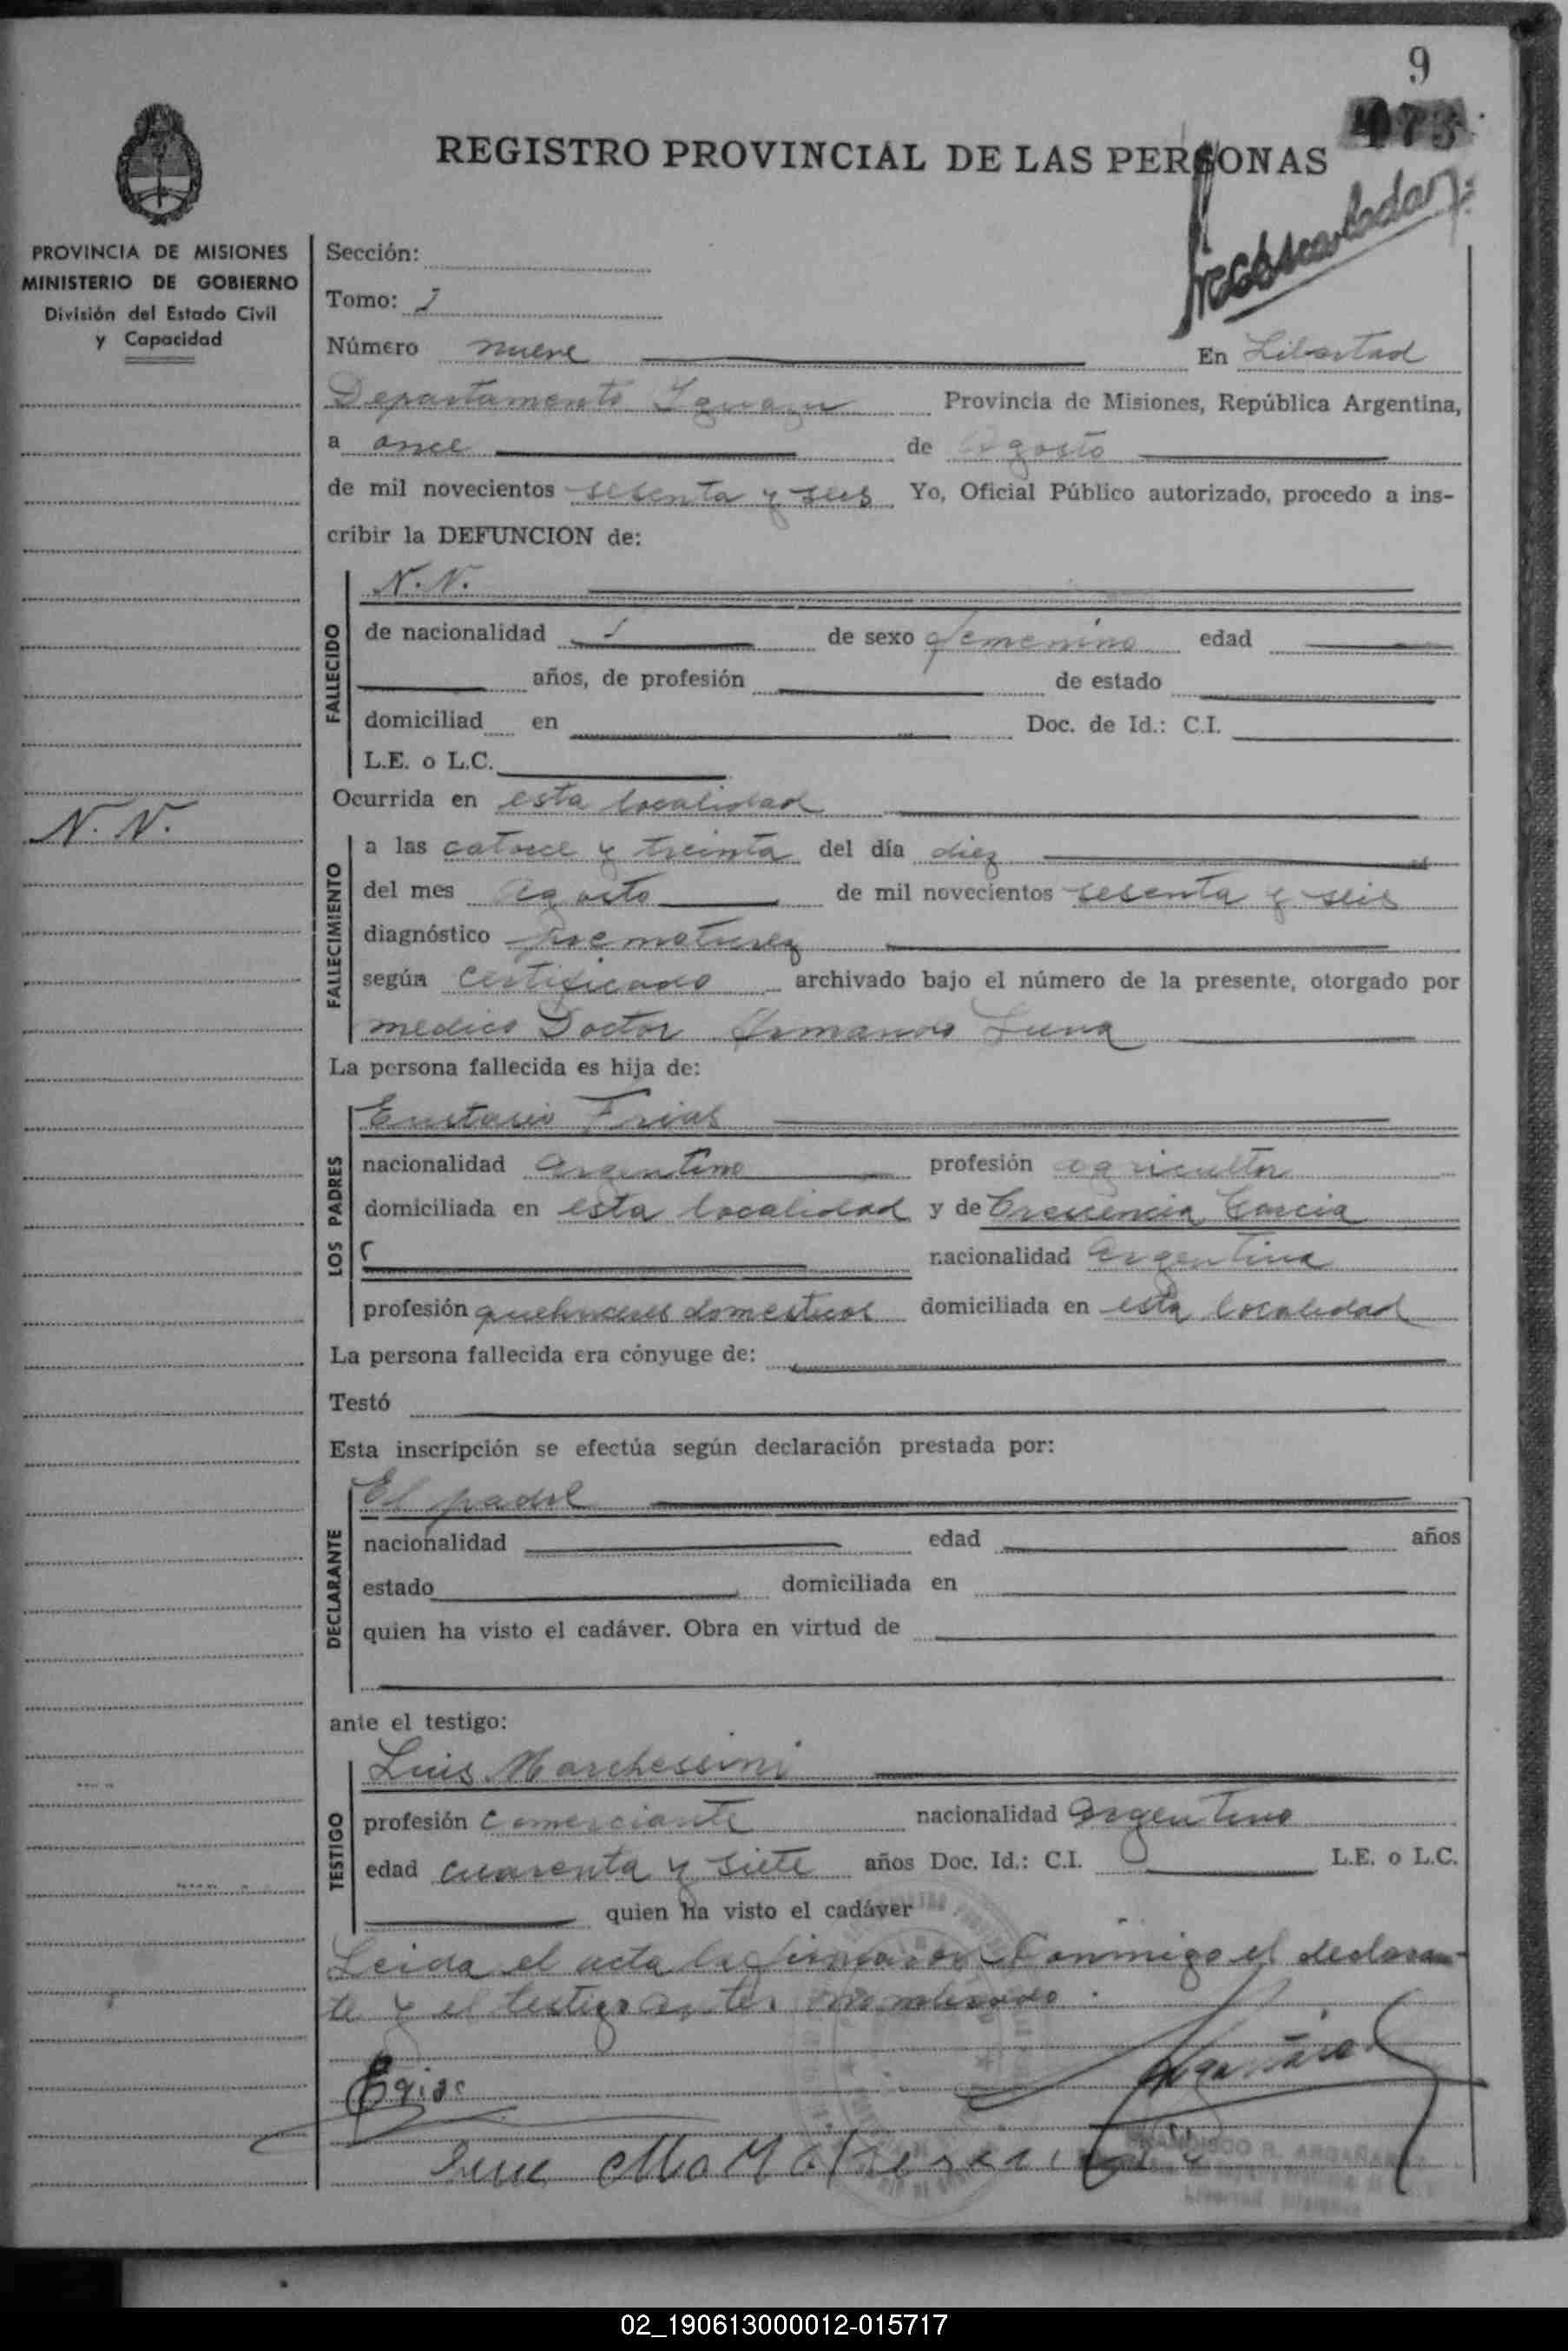 9
173
REGISTRO PROVINCIAL DE LAS PERSONAS
PROVINCIA DE MISIONES
MINISTERIO DE GOBIERNO
División del Estado Civil
y Capacidad
N. N.
Sección:
Tomo: I
Número nueve En Libertad
Departamento Iguazu Provincia de Misiones, República Argentina,
a once de Agosto
de mil novecientos sesenta y seis Yo, Oficial Público autorizado, procedo a ins-
cribir la DEFUNCION de:
FALLECIDO
N. N.
de nacionalidad de sexo femenino edad
años, de profesión de estado
domiciliad en Doc. de Id.: C.I.
L.E. o L.C.
Ocurrida en esta localidad
FALLECIMIENTO
a las catorce y treinta del día diez
del mes Agosto de mil novecientos sesenta y seis
diagnóstico prematurez
según certificado archivado bajo el número de la presente, otorgado por
medico Doctor Armando Luna
La persona fallecida es hija de:
LOS PADRES
Eustasio Frias
nacionalidad argentino profesión agricultor
domiciliada en esta localidad y de Crescencia Garcia
nacionalidad argentina
profesión quehaceres domesticos domiciliada en esta localidad
La persona fallecida era cónyuge de:
Testó
Esta inscripción se efectúa según declaración prestada por:
DECLARANTE
El padre
nacionalidad edad años
estado domiciliada en
quien ha visto el cadáver. Obra en virtud de
ante el testigo:
TESTIGO
Luis Marchessini
profesión comerciante nacionalidad argentino
edad cuarenta y siete años Doc. Id.: C.I. L.E. o L.C.
quien ha visto el cadáver
Leida el acta la firmaron conmigo el declaran-
te y el testigo antes nombrado.
Frias
FRANCISCO R. ARGAÑARAZ
Libertad Misiones
02_190613000012-015717